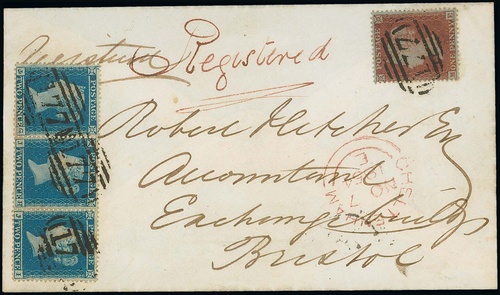 Registered
Registered
POSTAGE
ONE PENNY
POSTAGE
TWO PENCE
TWO PENCE
TWO PENCE
177
177
Robert Fletcher Esq
Accountant
Exchange buildgs
Bristol